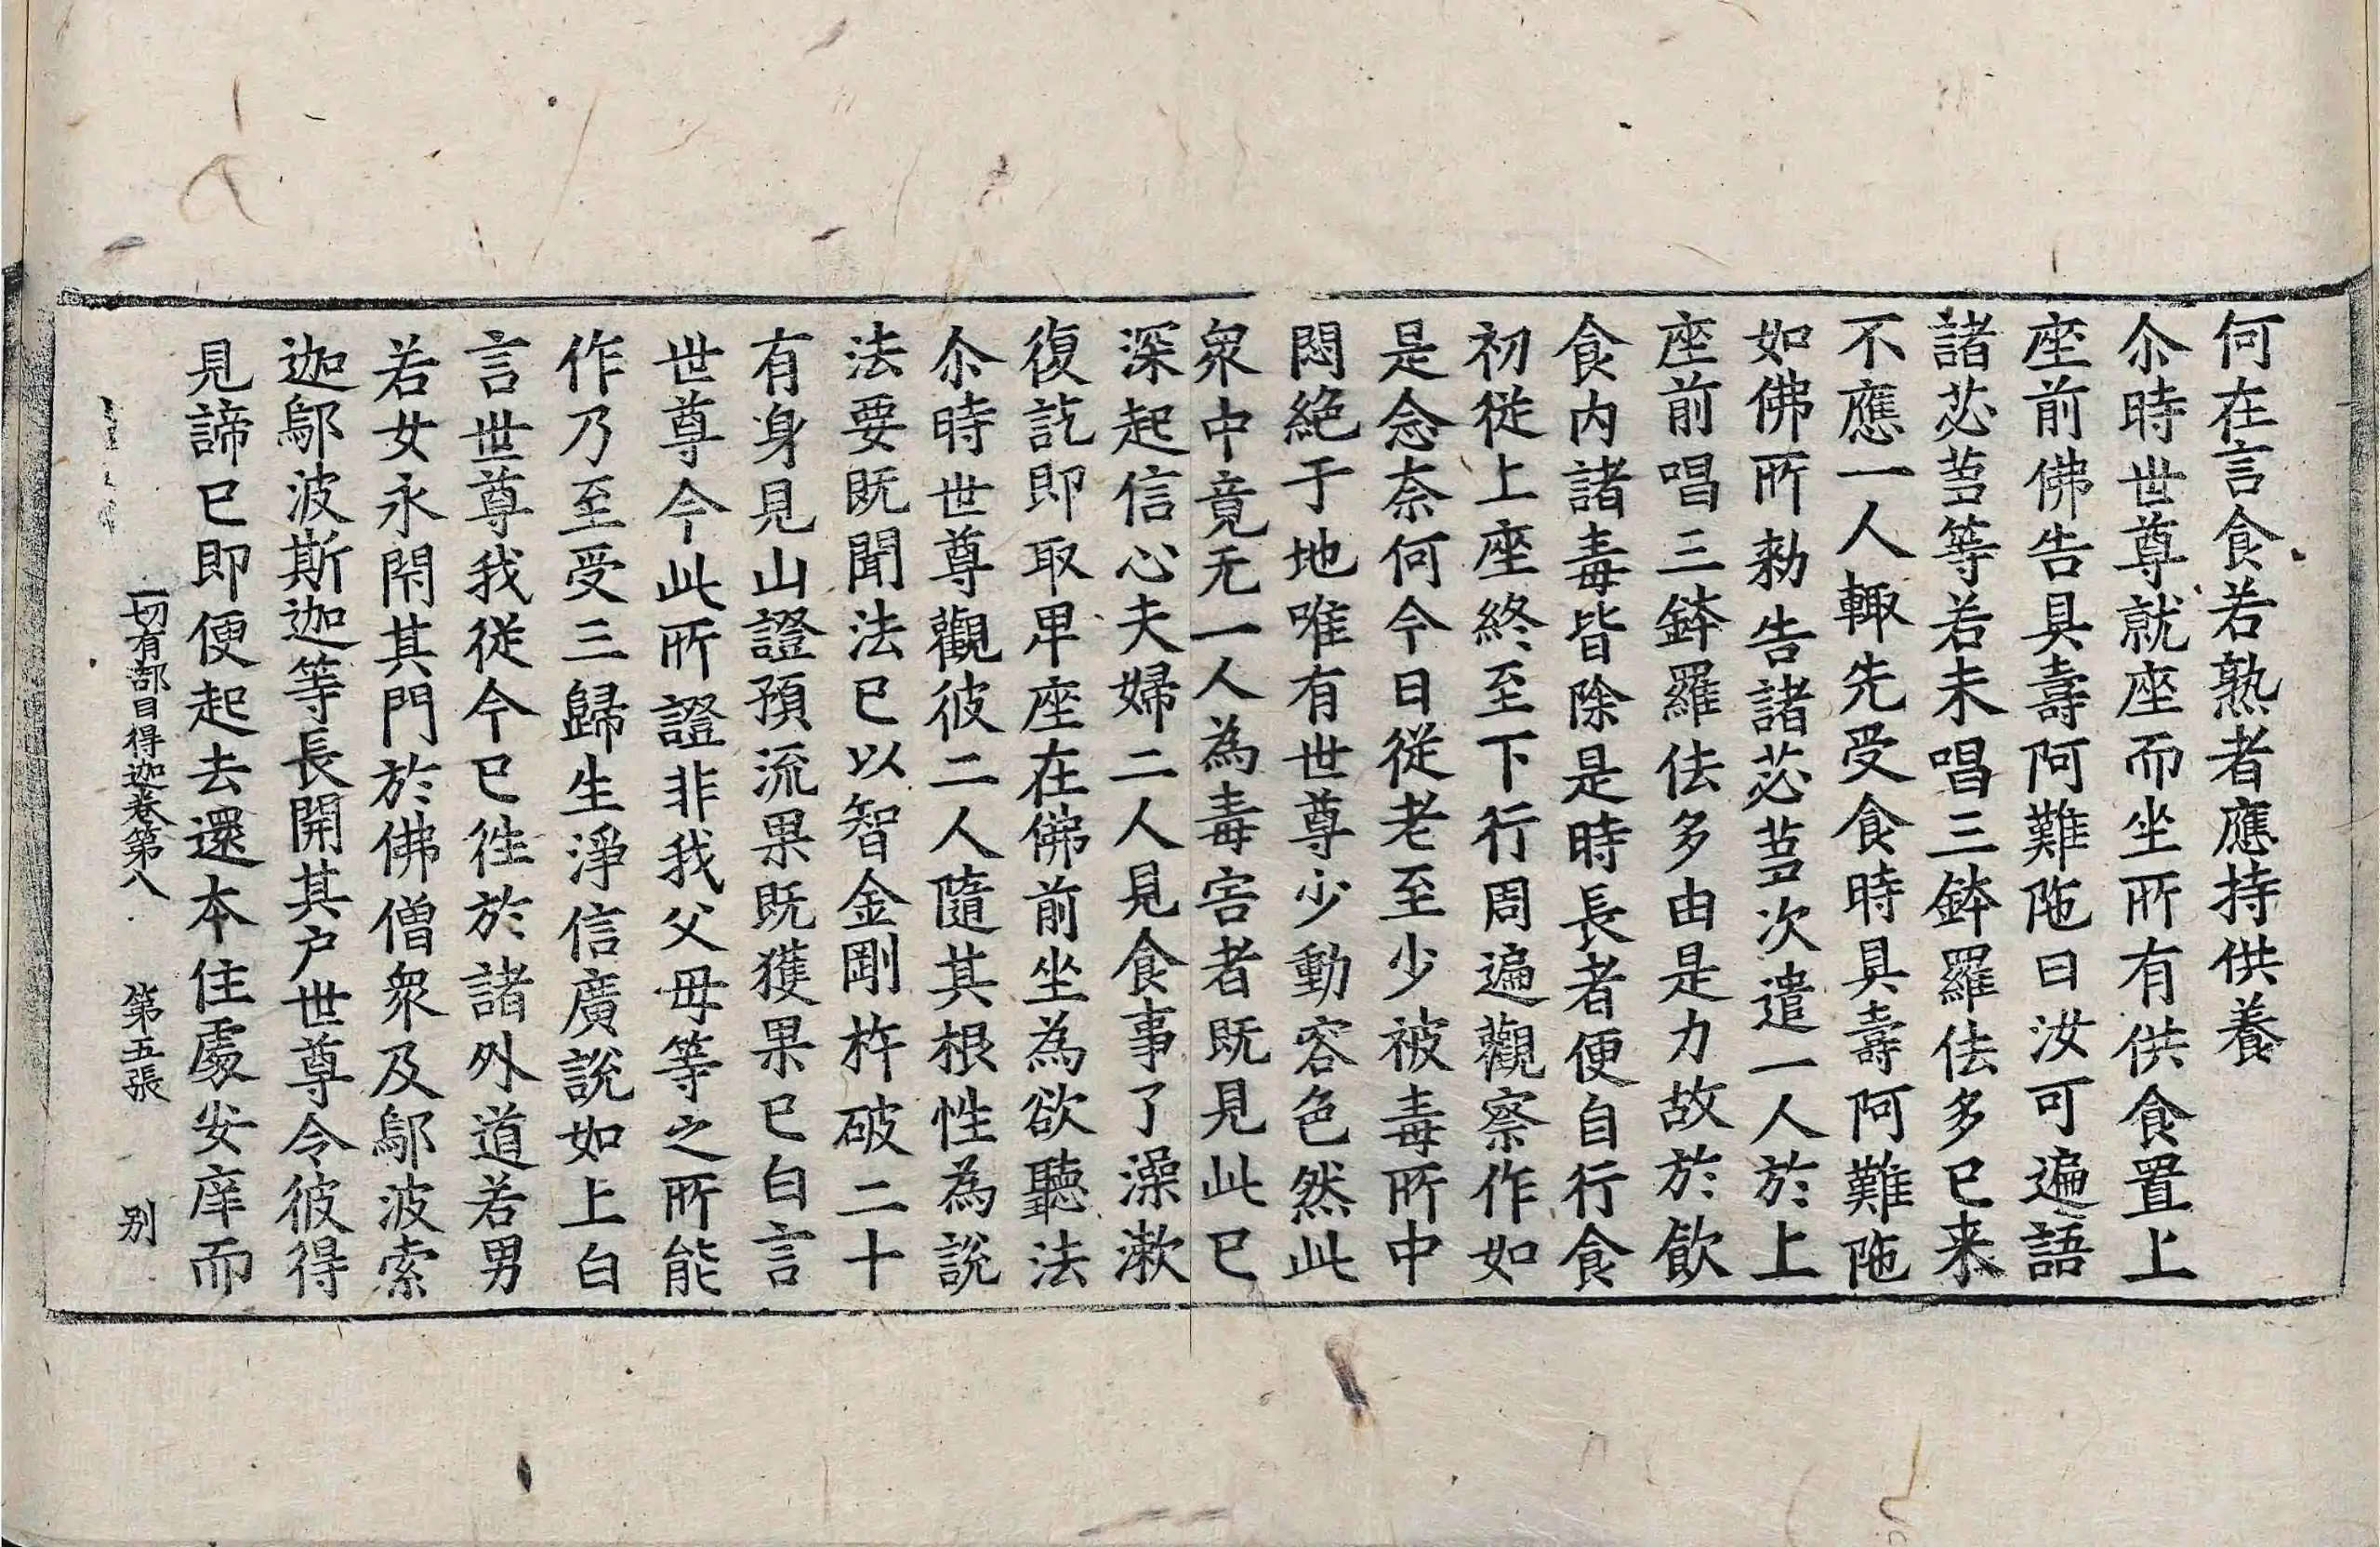 何在言食若熟者應持供養
尒時世尊就座而坐所有供食置上
座前佛告具壽阿難陁曰汝可遍語
諸苾芻等若未唱三鉢羅佉多已来
不應一人輙先受食時具壽阿難陁
如佛所勑告諸苾芻次遣一人於上
座前唱三鉢羅佉多由是力故於飮
食內諸毒皆除是時長者便自行食
初從上座終至下行周遍觀察作如
是念奈何今日從老至少被毒所中
悶絕于地唯有世尊少動容色然此
衆中竟无一人為毒害者既見此已
深起信心夫婦二人見食事了澡漱
復訖即取卑座在佛前坐為欲聽法
尒時世尊觀彼二人隨其根性為說
法要既聞法已以智金剛杵破二十
有身見山證預流果既獲果已白言
世尊今此所證非我父母等之所能
作乃至受三歸生淨信廣說如上白
言世尊我從今已徃於諸外道若男
若女永閇其門於佛僧衆及鄔波索
迦鄔波斯迦等長開其戶世尊令彼得
見諦已即便起去還本住處安庠而
一切有部目得迦卷第八 第五張 别